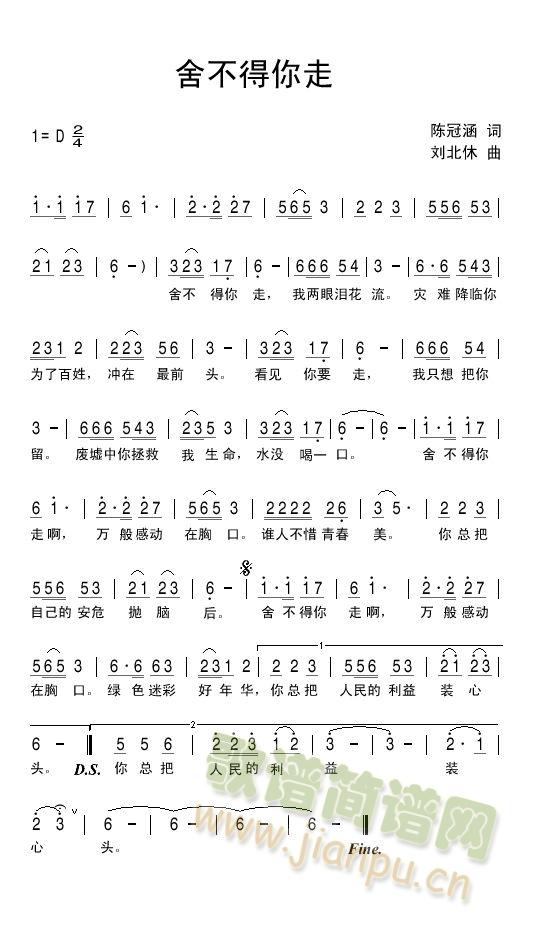 舍不得你走
1= D 2/4
陈冠涵 词
刘北休 曲
1·1 17 | 6 1· | 2·2 27 | 565 3 | 2 2 3 | 556 53 |
21 23 | 6 - ) | 323 17 | 6 - | 666 54 | 3 - | 6·6 543 |
舍不 得你 走， 我两眼泪花 流。 灾 难降临你
231 2 | 223 56 | 3 - | 323 17 | 6 - | 666 54 |
为了百姓， 冲在 最前 头。 看见 你要 走， 我只想 把你
3 - | 666 543 | 323 3 | 323 17 | 6 - | 6 - | 1·1 17 |
留。 废墟中你拯救 我 生命， 水没 喝一 口。 舍 不得你
6 1· | 2·2 27 | 565 3 | 2222 26 | 3 5· | 2 2 3 |
走啊， 万 般感动 在胸 口。 谁人不惜 青春 美。 你 总 把
556 53 | 21 23 | 6 - | 1·1 17 | 6 1· | 2·2 27 |
自己的 安危 抛 脑 后。 舍 不得你 走啊， 万 般感动
1
565 3 | 6·6 63 | 231 2 | 2 2 3 | 556 53 | 21 23 |
在胸 口。 绿 色迷彩 好 年 华， 你 总把 人民的 利益 装 心
2
6 - ‖ 5 5 6 | 2 2 3 1 2 | 3 - | 3 - | 2· 1 |
头。 D.S. 你 总 把 人 民 的 利 益 装
2 3 v | 6 - | 6 - | 6 - | 6 - ‖
心 头。 Fine.
歌谱简谱网
www.jianpu.cn